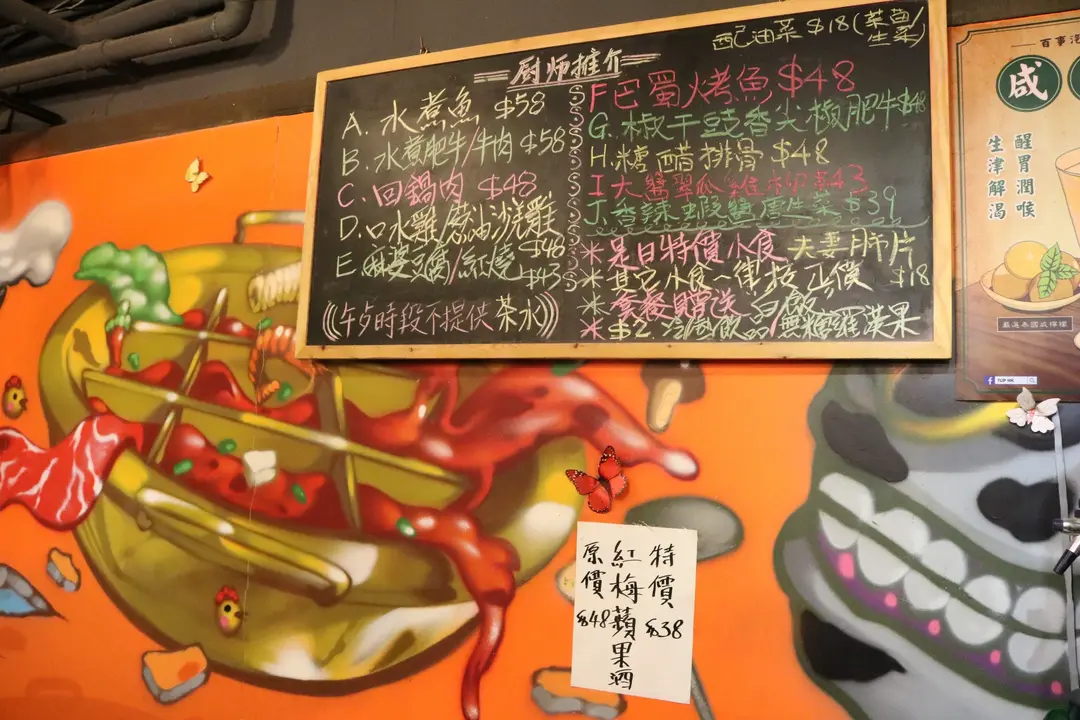 配油菜 $18(菜苗/
生菜)
厨师推介
A. 水煮魚 $58
B. 水煮肥牛/牛肉 $58
C. 回鍋肉 $48
D. 口水雞/葱油沙羌雞
$48
E 麻婆豆腐/紅燒 $43
((午歺時段不提供 茶水))
F 巴蜀火烤魚 $48
G. 椒干豉香尖椒肥牛 $48
H. 糖醋排骨 $48
I 大醬翠瓜 $43
J. 香辣蝦醬唐生菜 $39
* 是日特價小食 夫妻肺片
* 其它小食一律按正價 $18
* 套餐贈送 白飯
* $2. 冷熱飲品/無糖羅漢果
百事
咸
醒胃潤喉
生津解渴
嚴選泰國咸檸檬
TUP HK
特價 $38
紅梅蘋果酒
原價 $48